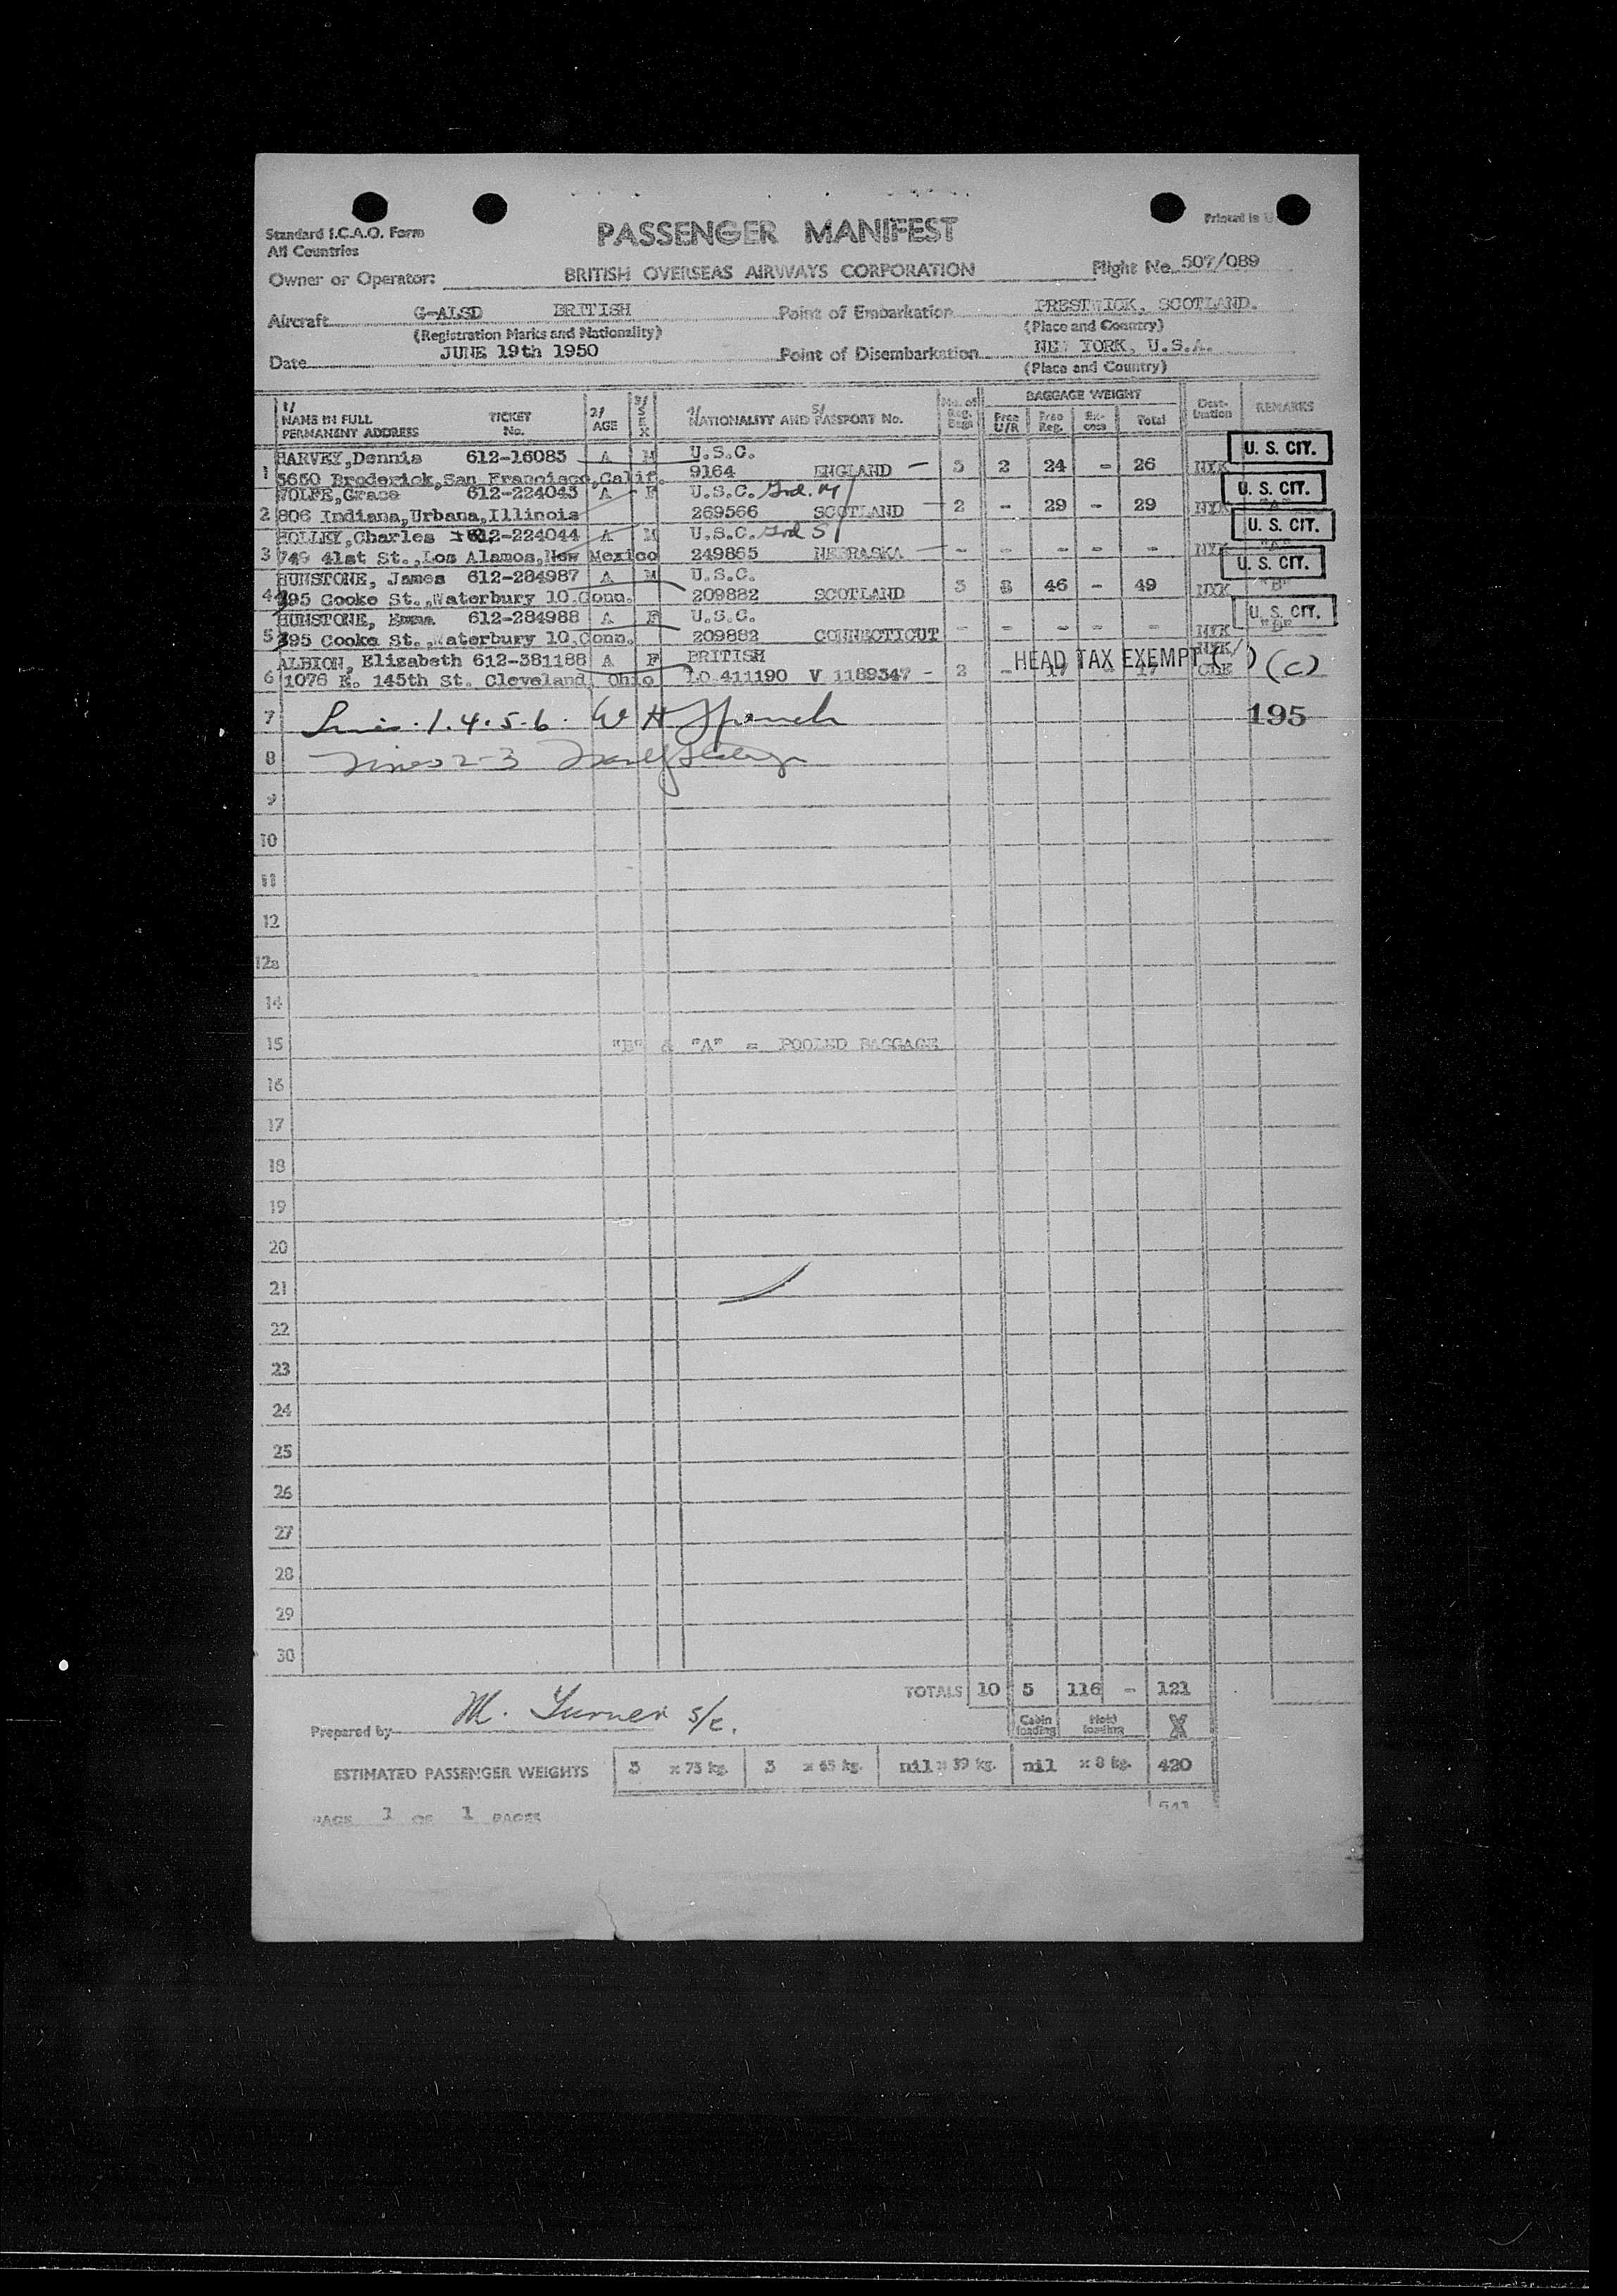 Standard I.C.A.O. Form
All Countries
PASSENGER MANIFEST
Printed in U.
Owner or Operator: BRITISH OVERSEAS AIRWAYS CORPORATION Flight No. 507/089
Aircraft G-ALSD BRITISH Point of Embarkation PRESTWICK, SCOTLAND.
(Registration Marks and Nationality) (Place and Country)
Date JUNE 19th 1950 Point of Disembarkation NEW YORK, U.S.A.
(Place and Country)
1/ NAME IN FULL PERMANENT ADDRESS TICKET No. 2/ AGE 3/ SEX 4/ NATIONALITY AND 5/ PASSPORT No. No. of Reg. Bags BAGGAGE WEIGHT Free U/R Free Reg. Excess Total Destination REMARKS
HARVEY,Dennis 612-16085 A M U.S.C. U. S. CIT.
1 3650 Broderick,San Francisco,Calif. 9164 ENGLAND - 3 2 24 - 26 NYK
WOLFE,Grace 612-224043 A F U.S.C. U. S. CIT.
2 806 Indiana,Urbana,Illinois 269566 SCOTLAND - 2 - 29 - 29 NYK "A"
HOLLEY,Charles 612-224044 A M U.S.C. U. S. CIT.
3 749 41st St.,Los Alamos,New Mexico 249865 NEBRASKA - - - - - NYK "A"
HUNSTONE, James 612-284987 A M U.S.C. U. S. CIT.
4 395 Cooke St.,Waterbury 10,Conn. 209882 SCOTLAND 3 3 46 - 49 NYK "B"
HUNSTONE, Emma 612-284988 A F U.S.C. U. S. CIT.
5 395 Cooke St.,Waterbury 10,Conn. 209882 CONNECTICUT - - - - - NYK "B"
ALBION, Elizabeth 612-381188 A F BRITISH HEAD TAX EXEMPT ( ) (C) NYK/
6 1076 E. 145th St. Cleveland, Ohio LO 411190 V 1189347 - 2 - 17 - 17 CLE
7 Lines 1.4.5.6. W H 195
8 Lines 2-3
9
10
11
12
12a
14
15 "B" & "A" = POOLED BAGGAGE
16
17
18
19
20
21
22
23
24
25
26
27
28
29
30
TOTALS 10 5 116 - 121
Prepared by M. Turner S/C. Cabin loading Hold loading X
ESTIMATED PASSENGER WEIGHTS 3 x 75 kg. 3 x 65 kg. nil x 39 kg. nil x 8 kg. 420
541
PAGE 1 OF 1 PAGES